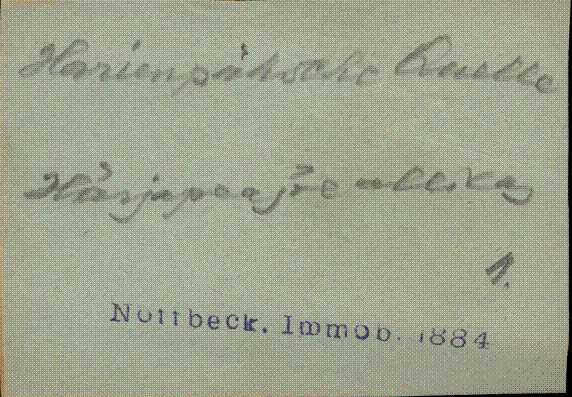 Harienpähsche Quelle
Härjapeajõe allikas
1.
Nottbeck. Immob. 1884